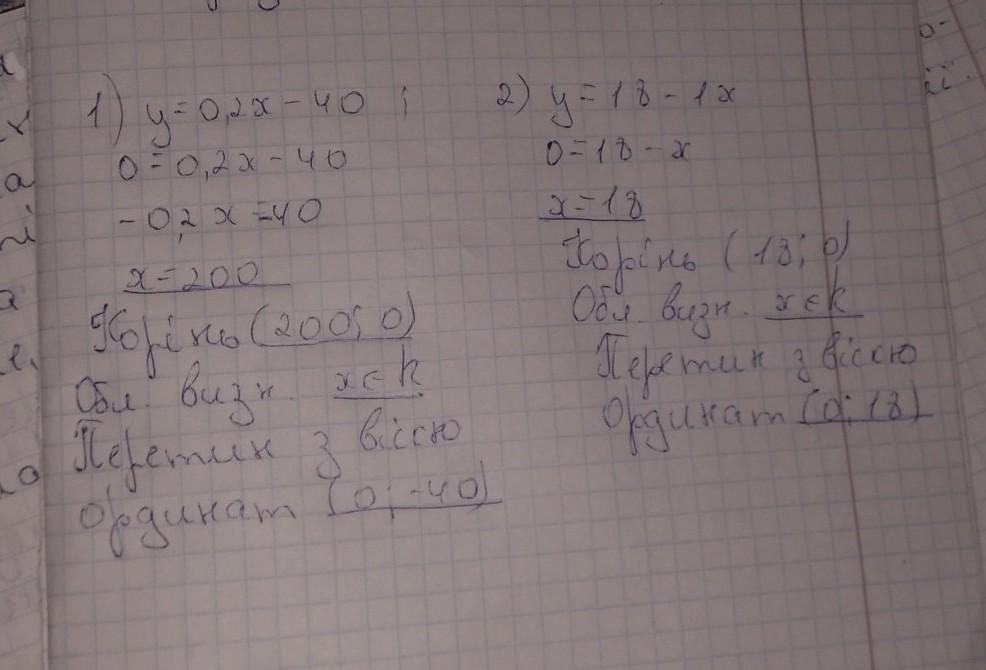 1) y=0,2x-40 ;
0=0,2x-40
-0,2x=40
x=200
Корінь (200; 0)
Обл. визн. x∈R
Перетин з віссю
ординат (0; -40)
2) y=18-1x
0=18-x
x=18
Корінь (18; 0)
Обл. визн. x∈R
Перетин з віссю
Ординат (0; 18)